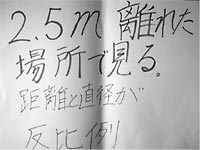 2.5m 離れた
場所で見る。
距離と直径が
反比例